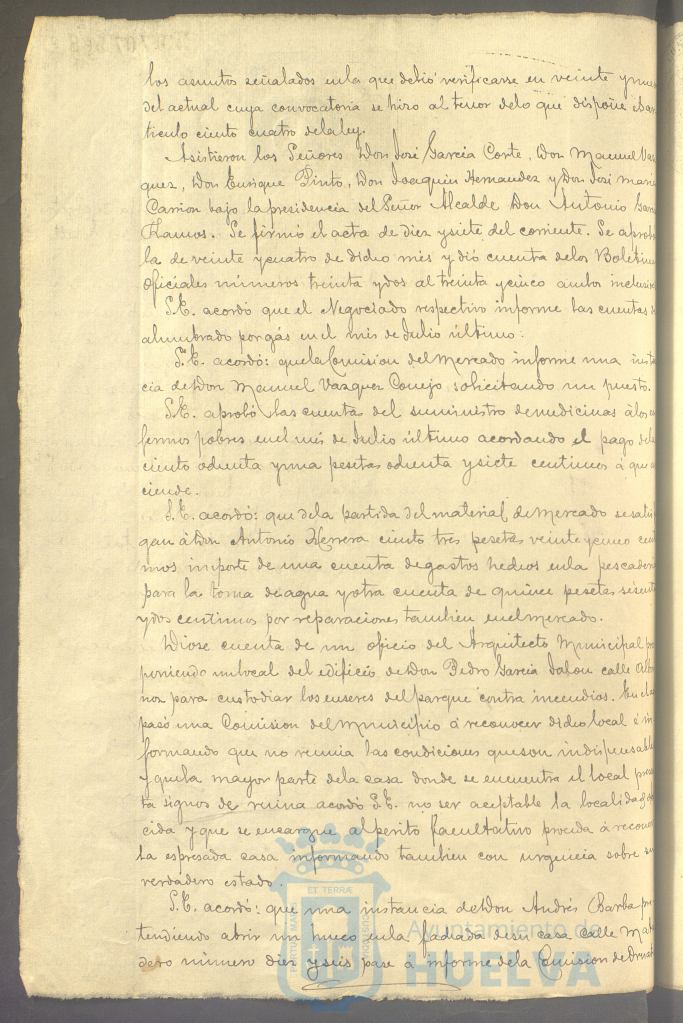 los asuntos señalados enla que debió verificarse en veinte y
del actual cuya convocatoria se hizo al tenor delo que dispone
ticulo ciento cuatro dela ley.
Asistieron los Señores Don José Garcia Corte, Don Manuel Vaz
quez, Don Enrique Pinto, Don Joaquin Hernandez y Don José Maria
Carrion bajo la presidencia del Señor Alcalde Don Antonio Garc
Ramos. Se firmó el acta de diez y siete del corriente. Se aprob
la de veinte y cuatro de dicho mes y dió cuenta delos Boletine
Oficiales números treinta y dos al treinta y cinco ambos inclusive
S.E. acordó que el Negociado respectivo informe las cuentas d
alumbrado por gás en el mes de Julio último.
S.E. acordó: que la Comision del Mercado informe una inst
cia de Don Manuel Vazquez Conejo, solicitando un puesto.
S.E. aprobó las cuenta del suministro de medicinas á los en
fermos pobres en el mes de Julio último acordando el pago dela
ciento ochenta y una pesetas ochenta y siete centimos á que a
ciende.
S.E. acordó: que dela partida del material de Mercado se satis
gan á Don Antonio Herrera ciento tres pesetas veinte y cinco cen
mos importe de una cuenta de gastos hechos enla pescader
para la toma de agua y otra cuenta de quince pesetas sesent
y dos centimos por reparaciones tambien en el mercado.
Diose cuenta de un oficio del Arquitecto Municipal pro
poniendo un local del edificio de Don Pedro Garcia calle
para custodiar los enseres del parque contra incendios.
pasó una Comision del Municipio á reconocer dicho local é in
formando que no reunia las condiciones que son indispensable
y que la mayor parte dela casa donde se encuentra el local prese
ta signos de ruina acordó S.E. no ser aceptable la localidad
cida y que se encargue al perito facultativo proceda á reconoc
la espresada casa informando tambien con urgencia sobre su
verdadero estado.
S.E. acordó: que una instancia de Don Andrés Barba pre
tendiendo abrir un hueco enla fachada de su casa calle Mata
dero número diez y seis pase á informe dela Comision de Ornato
ET TERRÆ
Ayuntamiento de
HUELVA